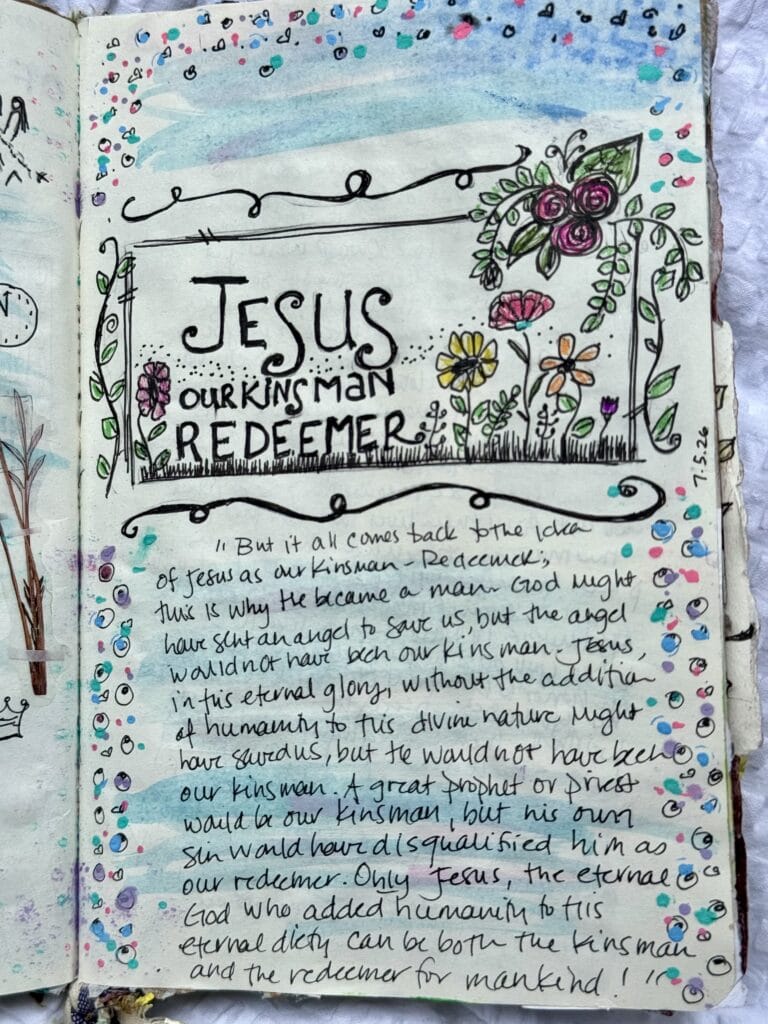 JESUS
OUR KINSMAN
REDEEMER
7.5.26
"But it all comes back to the idea
of Jesus as our Kinsman-Redeemer;
this is why He became a man. God might
have sent an angel to save us, but the angel
would not have been our kinsman. Jesus,
in His eternal glory, without the addition
of humanity to His divine nature might
have saved us, but He would not have been
our kinsman. A great prophet or priest
would be our kinsman, but his own
sin would have disqualified him as
our redeemer. Only Jesus, the eternal
God who added humanity to His
eternal diety can be both the kinsman
and the redeemer for mankind!"